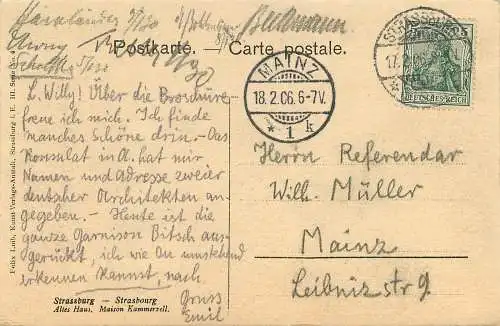 Postkarte. — Carte postale.
STRASSBURG
17.2.06
DEUTSCHES REICH
MAINZ
18.2.06.6-7V.
* 1 k
L. Willy! Über die Broschüre
freue ich mich. Ich finde
manches Schöne drin. - Das
Konsulat in A. hat mir
Namen und Adresse zweier
deutscher Architekten an-
gegeben. - Heute ist die
ganze Garnison Bitsch aus-
gerückt, ich wie Du umstehend
erkennen kannst, nach
Gruss
Emil
Herrn Referendar
Willi Müller
Mainz
Leibnizstr 9
Strassburg — Strasbourg
Altes Haus. Maison Kammerzell.
Felix Luib, Kunst-Verlags-Anstalt, Strassburg i. E.